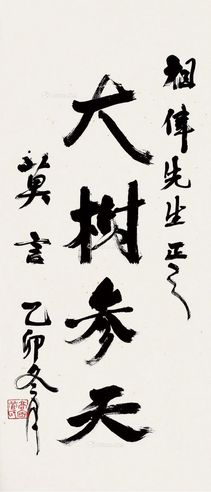 祖偉先生正之
大樹参天
莫言
乙卯冬月